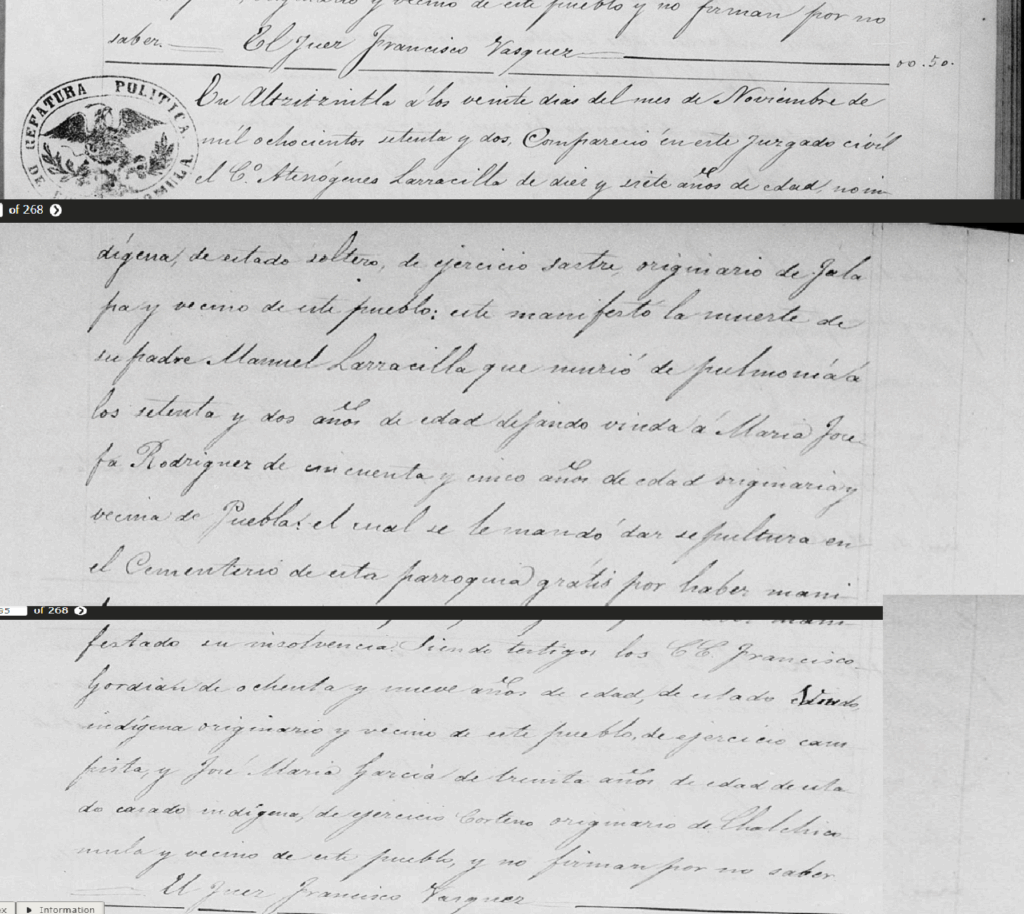 originario y vecino de este pueblo y no firman por no
saber. El Juez Francisco Vasquez
00.50.
GEFATURA POLITICA
DE
En Altzitzintla á los veinte dias del mes de Noviembre de
mil ochocientos setenta y dos, Comparecio en este juzgado civil
el C.º Atenógenes Larracilla de diez y siete años de edad, no in-
of 268
dígena, de estado soltero, de ejercicio sastre, originario de Jala
pa y vecino de este pueblo: este manifestó la muerte de
su padre Manuel Larracilla que murió de pulmonía a
los setenta y dos años de edad dejando viuda á Maria Jose
fa Rodriguez de cincuenta y cinco años de edad originaria y
vecina de Puebla: el cual se le mandó dar sepultura en
el Cementerio de esta parroquia grátis por haber mani-
of 268
festado su insolvencia. Siendo testigos los CC. Francisco
Gordian de ochenta y nueve años de edad, de estado Viudo,
indígena originario y vecino de este pueblo, de ejercicio cam
pista, y José Maria Garcia de treinta años de edad de esta
do casado indígena, de ejercicio Corteno originario de Chalchico
mula y vecino de este pueblo, y no firman por no saber
El Juez Francisco Vasquez
Information